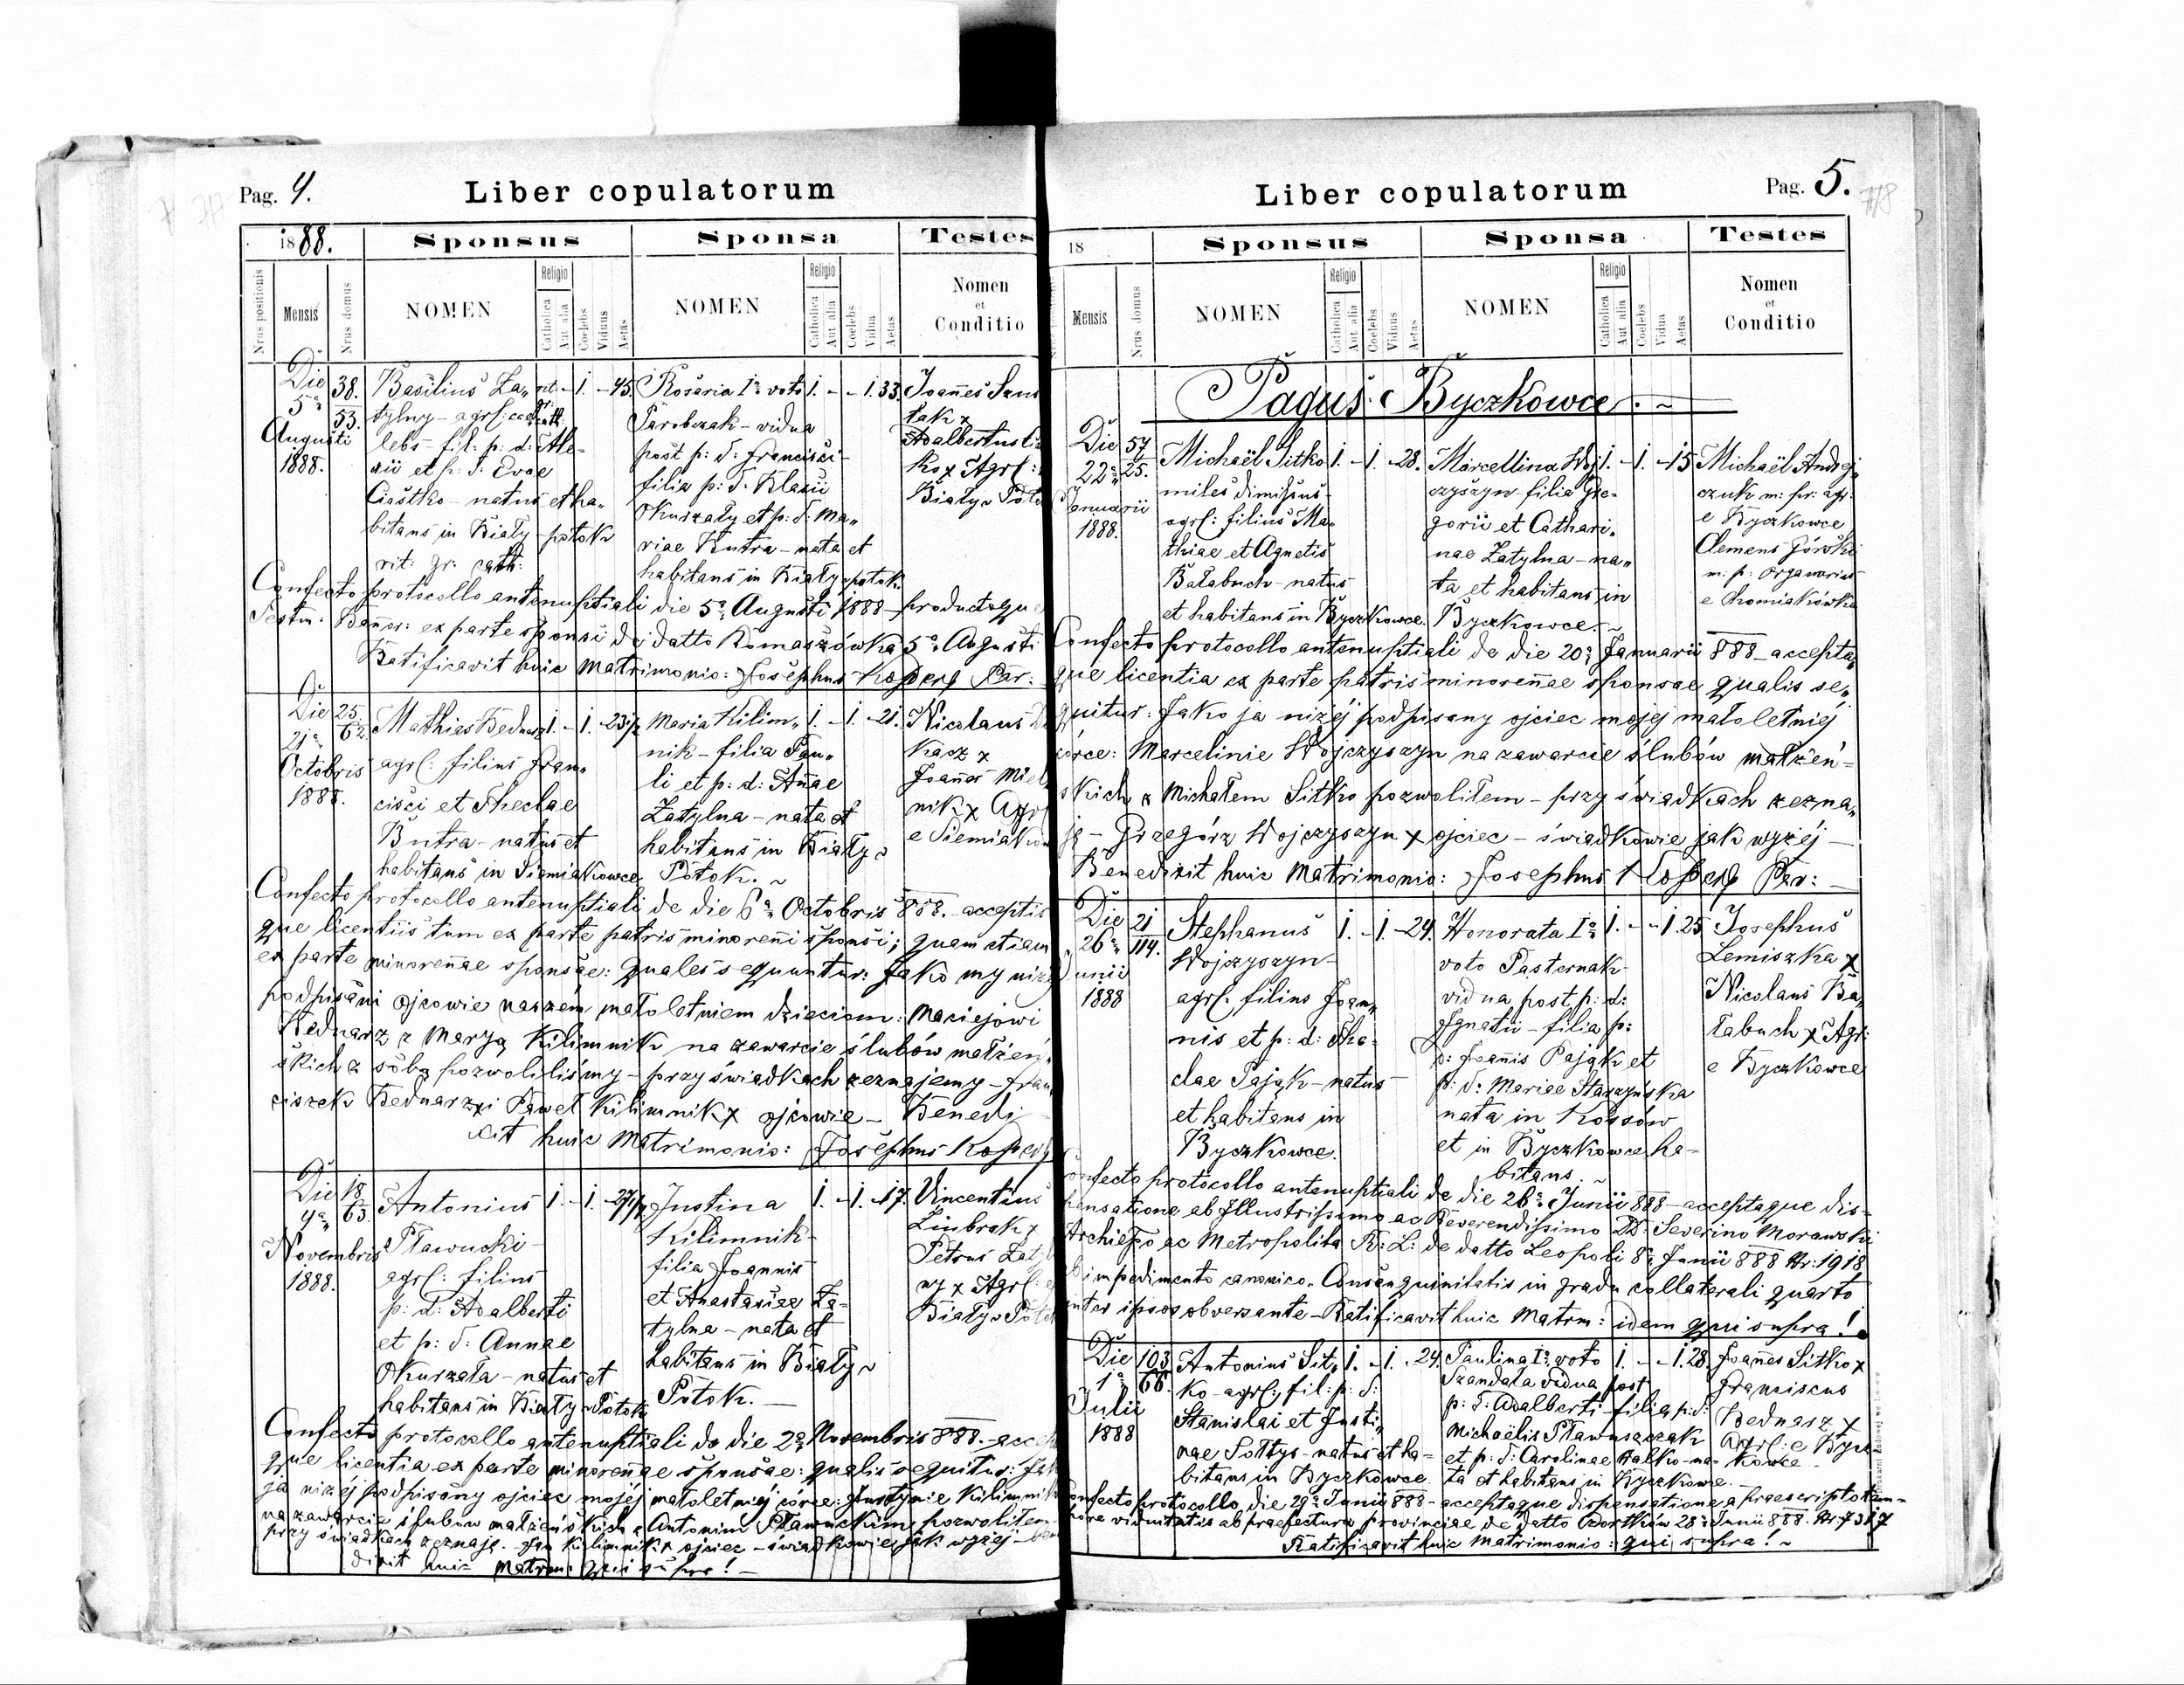 Pag. 4.
Liber copulatorum
1888.
Sponsus
Sponsa
Testes
Nrus positionis
Mensis
Nrus domus
NOMEN
Religio
Catholica
Aut alia
Coelebs
Viduus
Aetas
NOMEN
Religio
Catholica
Aut alia
Coelebs
Vidua
Aetas
Nomen
et
Conditio
Die
5a
Augusti
1888.
38.
53.
Basilius Za„
tylny - agrl: coe
lebs - fil: p: d: Ale-
xii et p: d: Evae
Ciastko - natus et ha„
bitans in Biały - potok
rit. gr. cath:
rit - 1. - 45.
gr:
cath:
Rosaria Io voto
Parobczak - vidua
post p: d: Francisci
filia p: d: Blasii
Okurzały et p: d: Ma„
riae Butra - nata et
habitans in Biały potok.
1. - - 1. 33.
Joannes
tak x
Adalbertus
ko x Agrl:
Biały Poto
Confecto protocollo antenuptiali die 5a Augusti 1888 - productoque
Testm: Banor: ex parte sponsi de datto Romaszówka 5a Augusti
Ratificavit huic Matrimonio: Josephus Koperg Par:
Die
21a
Octobris
1888.
25.
62.
Mathias Bednarz
agrl: filius Fran„
cisci et Theclae
Butra - natus et
habitans in Siemiakowce
1. - 1. - 23 1/2
Maria Kilim„
nik - filia Pau„
li et p: d: Annae
Zatylna - nata et
habitans in Biały
Potok. ~
1. - 1. - 21.
Nicolaus
kacz x
Joannes Miel
nik x Agrl
e Siemiakow
Confecto protocollo antenuptiali de die 6a Octobris 888. - acceptis
que licentiis tum ex parte patris minorenni sponsi; quam etiam
ex parte minorennae sponsae: quales sequuntur: Jako my niżej
podpisani ojcowie naszem małoletniem dzieciom: Maciejowi
Bednarz z Maryą Kilimnik na zawarcie ślubów małżeń„
skich z sobą pozwoliliśmy - przy świadkach zeznajemy - Fran
ciszek Bednarz x i Paweł Kilimnik x ojcowie - Benedi
xit huic Matrimonio: Josephus Koperg
Die
4a
Novembris
1888.
18.
63.
Antonius
Pławucki
agrl: filius
p: d: Adalberti
et p: d: Annae
Okurzała - natus et
habitans in Biały Potok
1. - 1. - 27 1/2
Justina
Kilimnik
filia Joannis
et Anastasiae Za-
tylna - nata et
habitans in Biały
Potok. -
1. - 1. - 17.
Vincentius
Zinbrak x
Petrus Zatyl
ny x Agrl:
Biały Potok
Confecto protocollo antenuptiali de die 2a Novembris 888. - accep
que licentia ex parte minorennae sponsae: qualis sequitur: Jako
ja niżej podpisany ojciec mojej małoletniej córce: Justynie Kilimnik
na zawarcie ślubów małżeńskich z Antonim Pławuckim pozwoliłem
przy świadkach zeznaję. - Jan Kilimnik x ojciec - świadkowie jak wyżej - bene
dixit huic Matrm: qui supra! -
Liber copulatorum
Pag. 5.
18
Sponsus
Sponsa
Testes
Mensis
Nrus domus
NOMEN
Religio
Catholica
Aut alia
Coelebs
Viduus
Aetas
NOMEN
Religio
Catholica
Aut alia
Coelebs
Vidua
Aetas
Nomen
et
Conditio
Pagus: Byczkowce. ~
Die
22a
Januarii
1888.
57
25.
Michaël Sitko
miles dimissus
agrl: filius Ma„
thiae et Agnetis
Bałabuch - natus
et habitans in Byczkowce.
1. - 1. - 28.
Marcellina Woj
czyszyn - filia Gre-
gorii et Cathari„
nae Zatylna - na„
ta et habitans in
Byczkowce. ~
1. - 1. - 15
Michaël Andrej„
czuk m: pr: agr:
e Byczkowce
Clemens Górski
m: p: organarius
e Chomiakówka
Confecto protocollo antenuptiali de die 20a Januarii 888 - accepta„
que licentia ex parte patris minorennae sponsae qualis se„
quitur: Jako ja niżej podpisany ojciec mojej małoletniej
córce: Marcelinie Wojczyszyn na zawarcie ślubów małżeń-
skich z Michałem Sitko pozwoliłem - przy świadkach zezna„
ję - Grzegórz Wojczyszyn x ojciec - świadkowie jak wyżej -
Benedixit huic Matrimonio: Josephus Koperg Par: -
Die
26a
Junii
1888
21
114.
Stephanus
Wojczyszyn
agrl. filius Joan„
nis et p: d: The-
clae Pająk - natus
et habitans in
Byczkowce.
1. - 1. - 24.
Honorata Io
voto Pasternak
vidua post p: d:
Ignatii - filia p:
d: Joannis Pająk et
p: d: Mariae Starzyńska
nata in Kossów
et in Byczkowce ha-
bitans. ~
1. - - 1. 25
Josephus
Lemiszka x
Nicolaus Ba„
łabuch x Agr:
e Byczkowce
Confecto protocollo antenuptiali de die 26a Junii 888 - acceptaque dis-
pensatione ab Illustrissimo ac Reverendissimo DD: Severino Morawski
Archieppo ac Metropolita R: L: de datto Leopoli 8a Junii 888 Nr: 1918
impedimento canonico. Consanguinitatis in gradu collaterali quarto
inter ipsos obversante - Ratificavit huic Matrm: idem qui supra!
Die
1a
Julii
1888
103.
66.
Antonius Sit„
ko - agrl: fil: p: d:
Stanislai et Justi„
nae Sołtys - natus et ha-
bitans in Byczkowce.
1. - 1. - 24.
Paulina Io voto
Szandała vidua post
p: d: Adalberti - filia p: d:
Michaëlis Pławuszczak
et p: d: Carolinae Hałko - na-
ta et habitans in Byczkowce. -
1. - - 1. 28.
Joannes Sitko x
Franciscus
Bednarz x
Agrl: e Bycz-
kowce.
Confecto protocollo die 29a Junii 888 - acceptaque dispensatione a praescripto tem-
pore viduitatis ab praefectura provinciae de datto Czortków 28a Junii 888. Nr 7317
Ratificavit huic Matrimonio: qui supra! ~